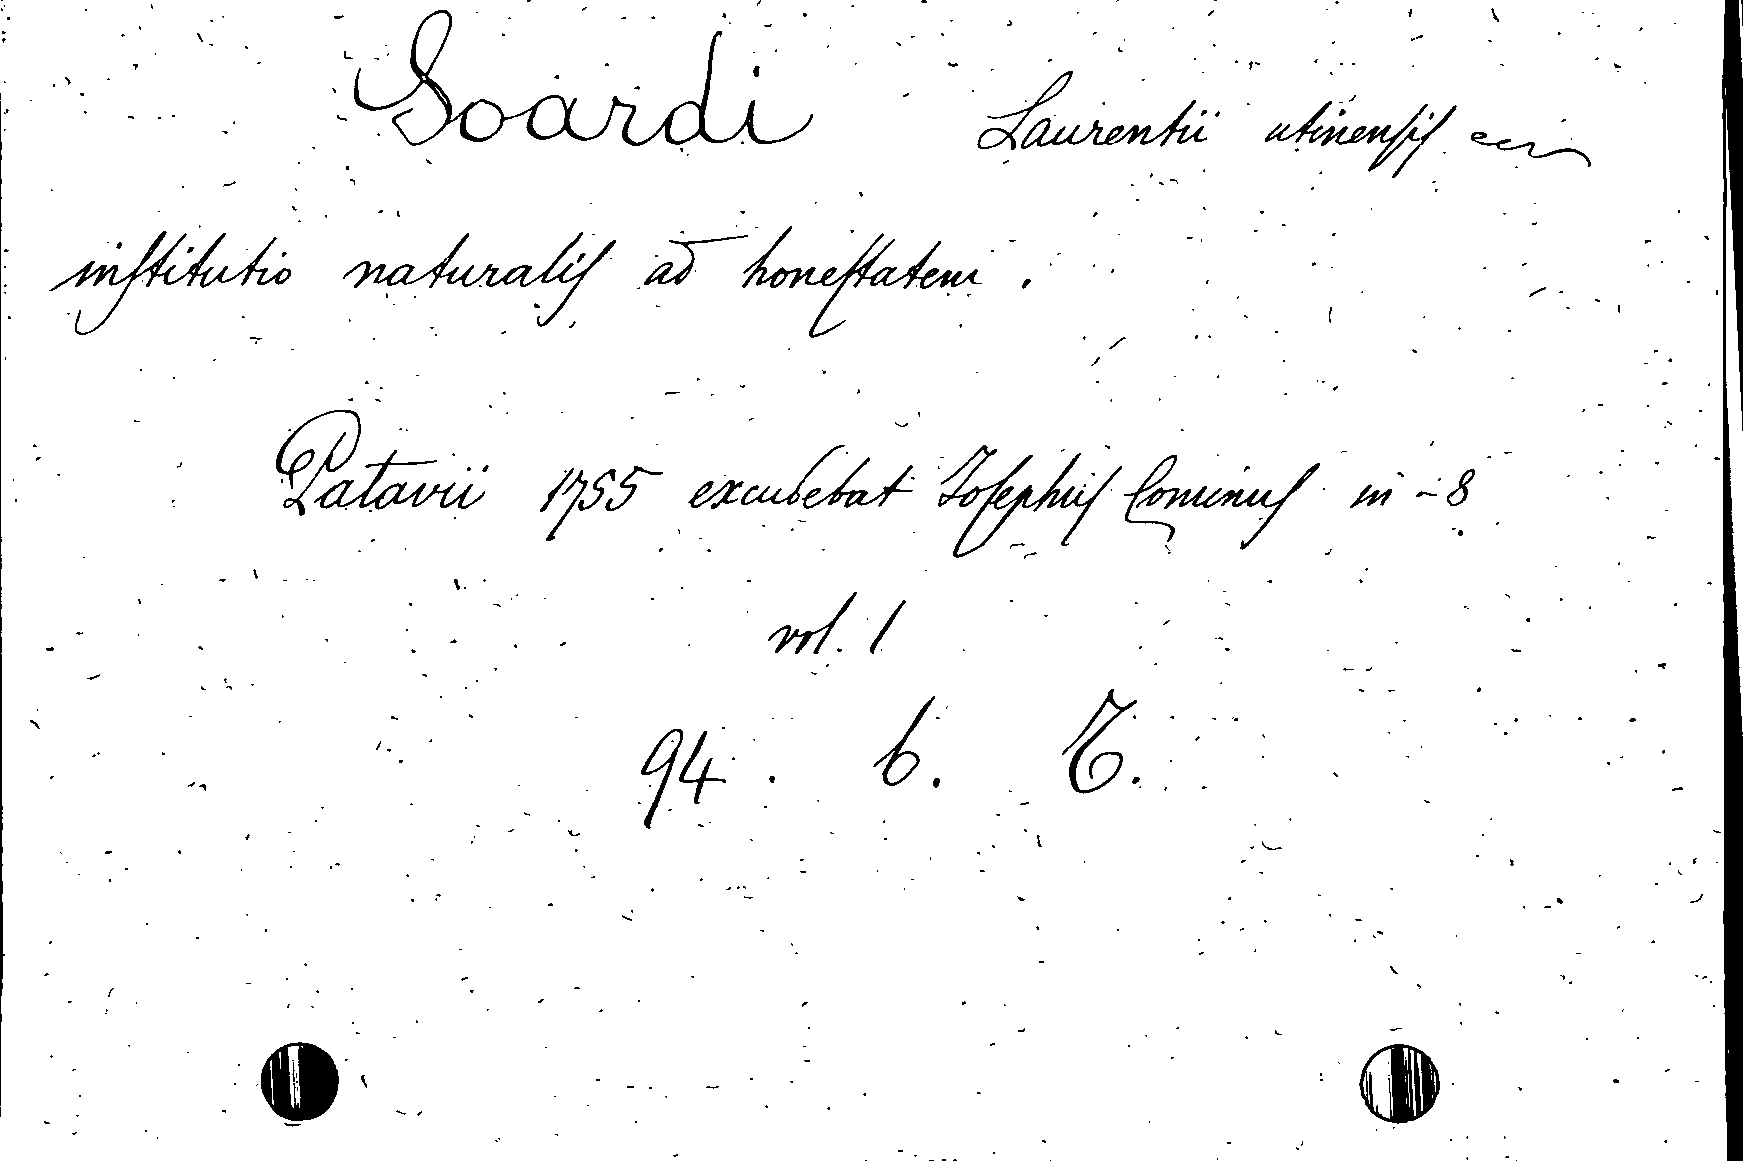 Soardi Laurentii utinensis
institutio naturalis ad honestatem.
Patavii 1755 excudebat Josephus Cominus in-8
vol. 1
94. b.